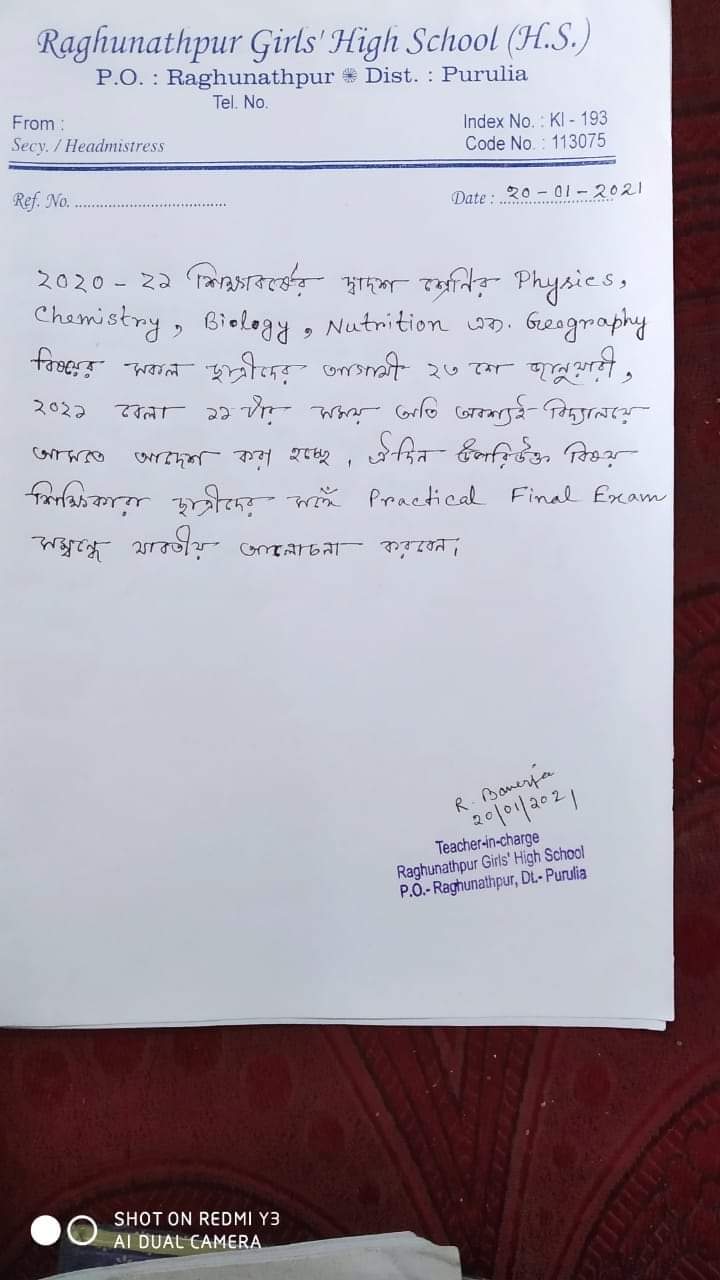 Raghunathpur Girls' High School (H.S.)
P.O. : Raghunathpur ❋ Dist. : Purulia
Tel. No.
From :
Secy. / Headmistress
Index No. : KI - 193
Code No. : 113075
Ref. No. ...................................
Date : 20-01-2021
২০২০ - ২১ শিক্ষাবর্ষের দ্বাদশ শ্রেণির Physics,
Chemistry, Biology, Nutrition এবং Geography
বিষয়ের সকল ছাত্রীদের আগামী ২৩ শে জানুয়ারী,
২০২১ বেলা ১১ টার সময় অতি অবশ্যই বিদ্যালয়ে
আসতে আদেশ করা হচ্ছে। ঐদিন উপরিউক্ত বিষয়
শিক্ষিকারা ছাত্রীদের সঙ্গে Practical Final Exam
সম্বন্ধে যাবতীয় আলোচনা করবেন।
R. Banerjee
20/01/2021
Teacher-in-charge
Raghunathpur Girls' High School
P.O.- Raghunathpur, Dt.- Purulia
SHOT ON REDMI Y3
AI DUAL CAMERA